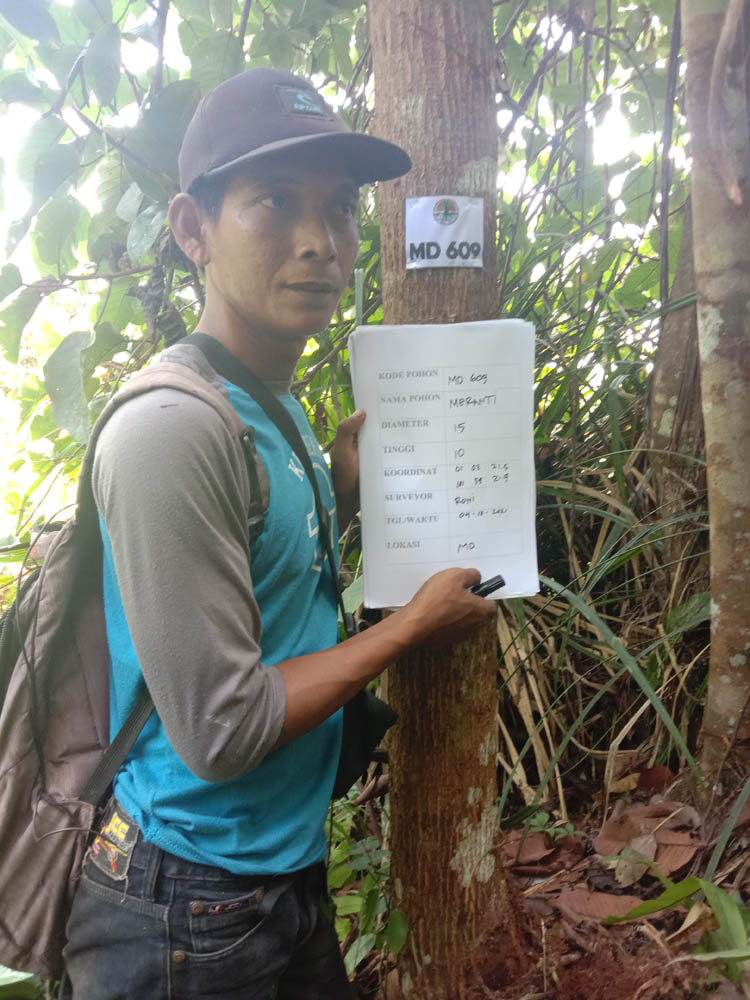 RIP CURL
MD 609
KODE POHON MD 609
NAMA POHON MERANTI
DIAMETER 15
TINGGI 10
KOORDINAT 01 02 21.5
101 39 21.9
SURVEYOR RONI
TGL/WAKTU 04-10-2021
LOKASI MD